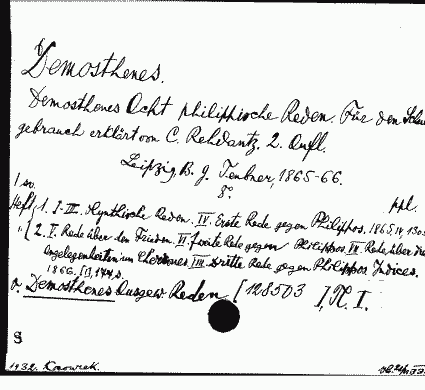 Demosthenes.
Demosthenes Acht philippische Reden. Für den Schul
gebrauch erklärt von C. Rehdantz. 2. Aufl.
Leipzig. B. G. Teubner, 1865-66.
8°.
ppl.
Heft 1. I-III. Olynthische Reden. IV. Erste Rede gegen Philippos. 1865.
" 2. V. Rede über den Frieden. VI. Zweite Rede gegen Philippos. VII. Rede über die
Angelegenheiten im Cherrones. III. Dritte Rede gegen Philippos. Indices.
1866.
v. Demosthenes Ausgew. Reden [128503 I, N. I.
S
1932.